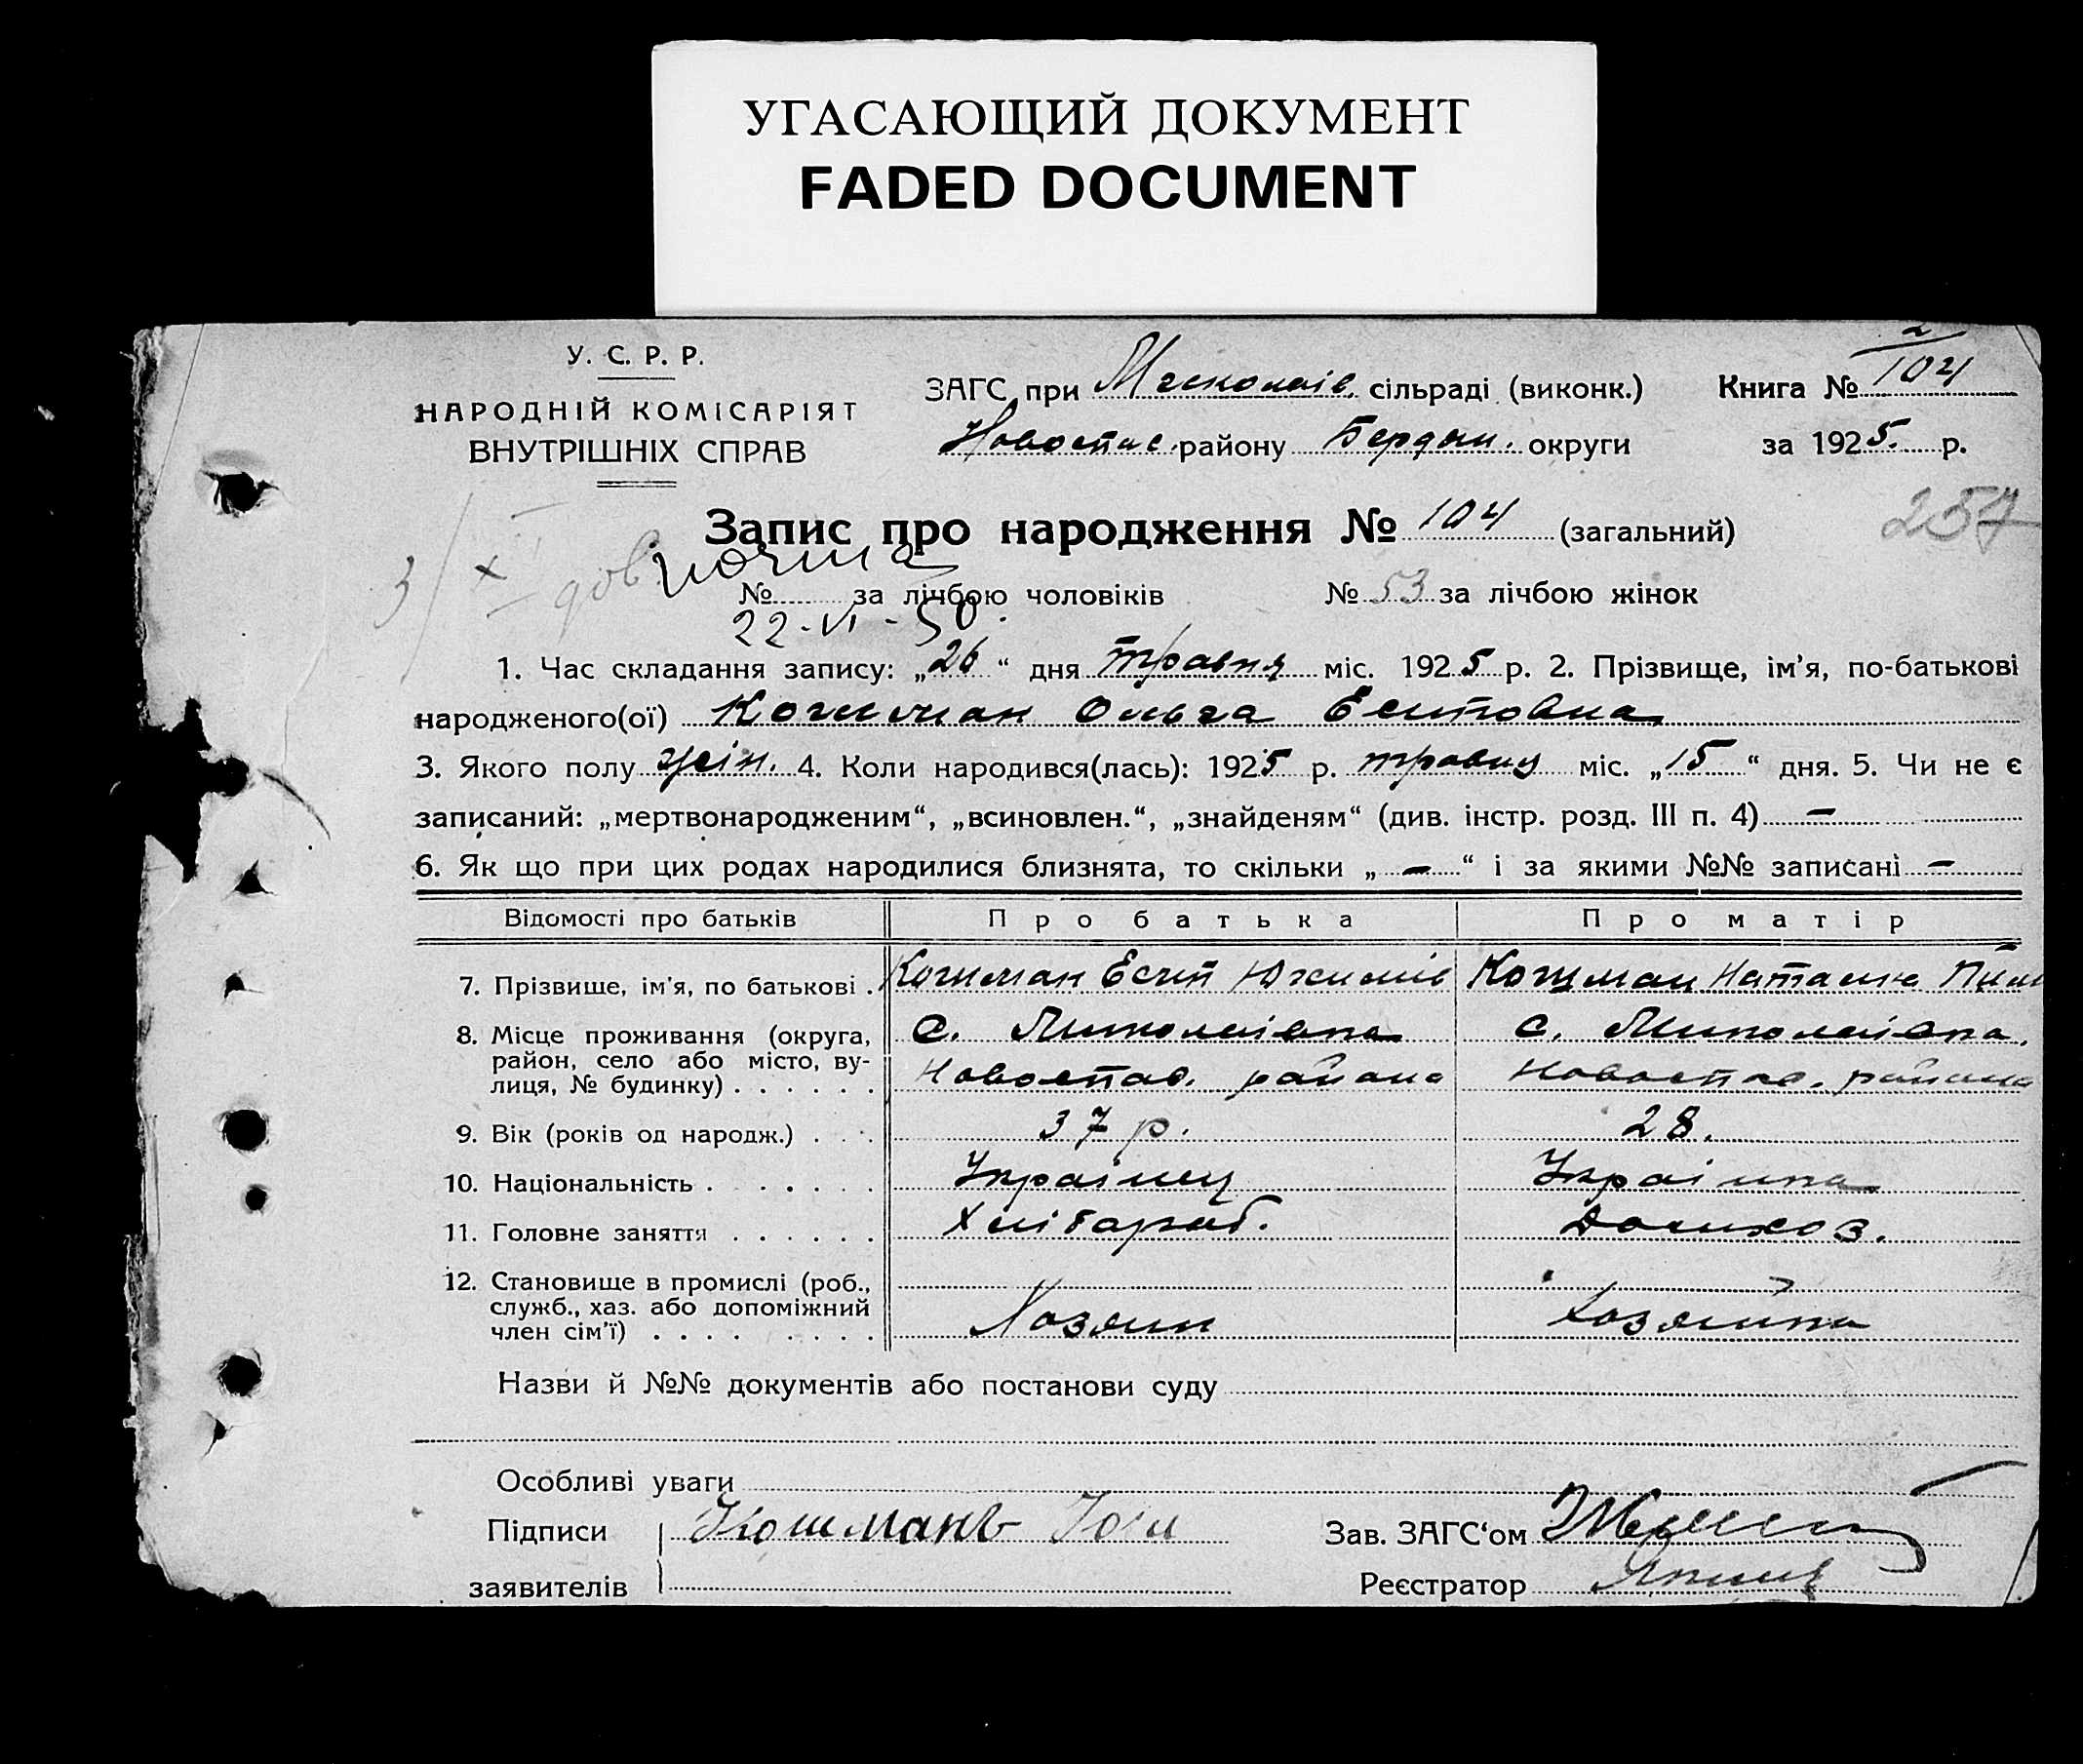 УГАСАЮЩИЙ ДОКУМЕНТ
FADED DOCUMENT
У. С. Р. Р.
НАРОДНІЙ КОМІСАРІЯТ
ВНУТРІШНІХ СПРАВ
ЗАГС при Миколаїв. сільраді (виконк.)
Книга № 2/104
Новоспас. району Бердян. округи
за 1925 р.
257
Запис про народження № 104 (загальний)
№ за лічбою чоловіків № 53 за лічбою жінок
22-VI-50.
1. Час складання запису: „26“ дня травня міс. 1925 р. 2. Прізвище, ім'я, по-батькові
народженого(ої) Кошман Ольга Еситовна
3. Якого полу жін. 4. Коли народився(лась): 1925 р. травня міс. „15“ дня. 5. Чи не є
записаний: „мертвонародженим“, „всиновлен.“, „знайденям“ (див. інстр. розд. III п. 4) —
6. Як що при цих родах народилися близнята, то скільки „—“ і за якими №№ записані —
Відомості про батьків Про батька Про матір
7. Прізвише, ім'я, по батькові . Кошман Есип Кошман Наталя
8. Місце проживання (округа, с. Миколаівка с. Миколаівка.
район, село або місто, ву-
лиця, № будинку) . . . . . . Новоспас. района Новоспас. района
9. Вік (років од народж.) . . . 37 р. 28.
10. Національність . . . . . . Украінец Украінка
11. Головне заняття . . . . . . Хлібороб. Домхоз.
12. Становище в промислі (роб.,
служб., хаз. або допоміжний
член сім'ї) . . . . . . . . Хозяин Хозяйка
Назви й №№ документів або постанови суду
Особливі уваги
Підписи Кошманъ
Зав. ЗАГС'ом
заявителів
Реєстратор